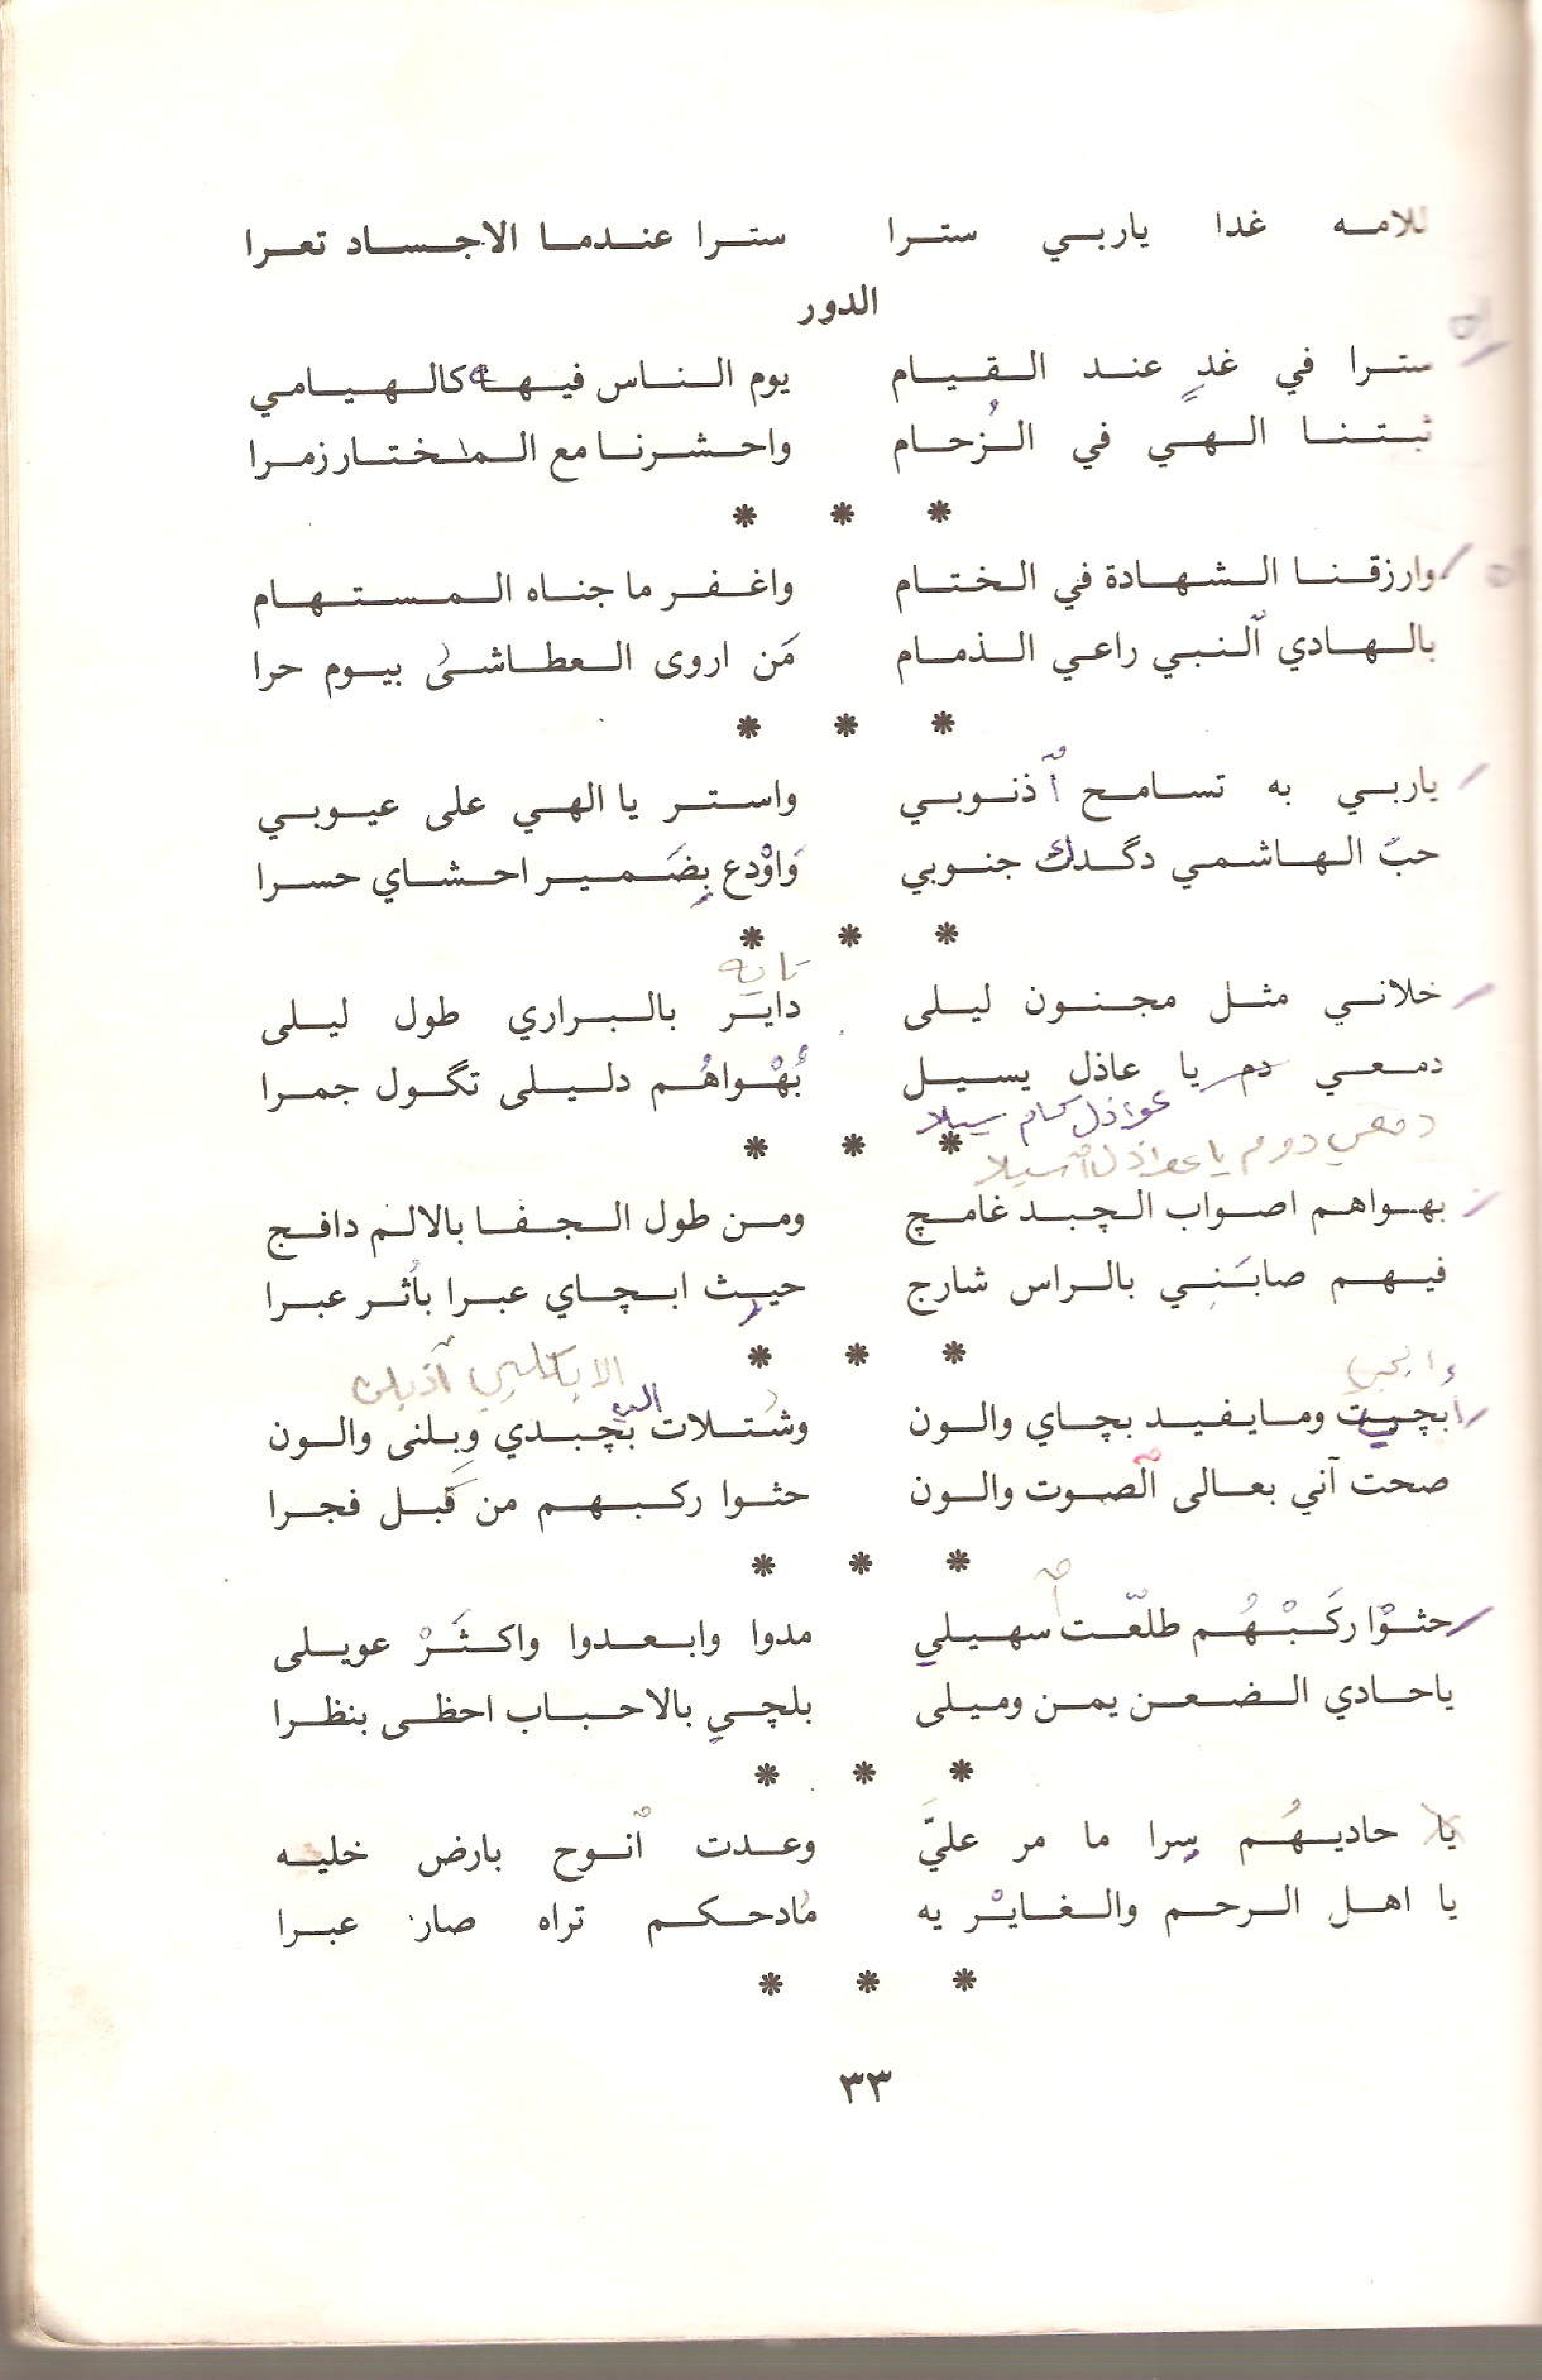 للامه غدا ياربي سترا سترا عندما الاجساد تعرا
الدور
سترا في غدٍ عند القيام يوم الناس فيها كالهيامي
ثبتنا الهي في الزُحام واحشرنا مع المختار زمرا
* * *
وارزقنا الشهادة في الختام واغفر ما جناه المستهام
بالهادي النبي راعي الذمام مَن اروى العطاشى بيوم حرا
* * *
ياربي به تسامح أذنوبي واستر يا الهي على عيوبي
حبّ الهاشمي دگدك جنوبي وَاوْدع بِضَمير احشاي حسرا
* * *
تايه
خلاني مثل مجنون ليلى داير بالبراري طول ليلى
دمعي دم يا عاذل يسيل بُهْواهُم دليلى تگول جمرا
عواذل كام سيلا
دمعي دوم يا عواذل سيلا
* * *
بهواهم اصواب الچبد غامچ ومن طول الجفا بالالم دافج
فيهم صابَنِي بالراس شارج حيث ابچاي عبرا بأثر عبرا
* * *
أبچيت ومايفيد بچاي والون وشتلات بچبدي وبلنى والون
صحت آني بعالى الصوت والون حثوا ركبهم من گبل فجرا
* * *
حثوْا ركَبْهُم طلعّت سهيلي مدوا وابعدوا واكثَرْ عويلى
ياحادي الضعن يمن وميلى بلچي بالاحباب احظى بنظرا
* * *
يا حاديهُم سِرا ما مر عليَّ وعدت انوح بارض خليه
يا اهل الرحم والغايرْ يه مُادحكم تراه صار عبرا
* * *
٣٣